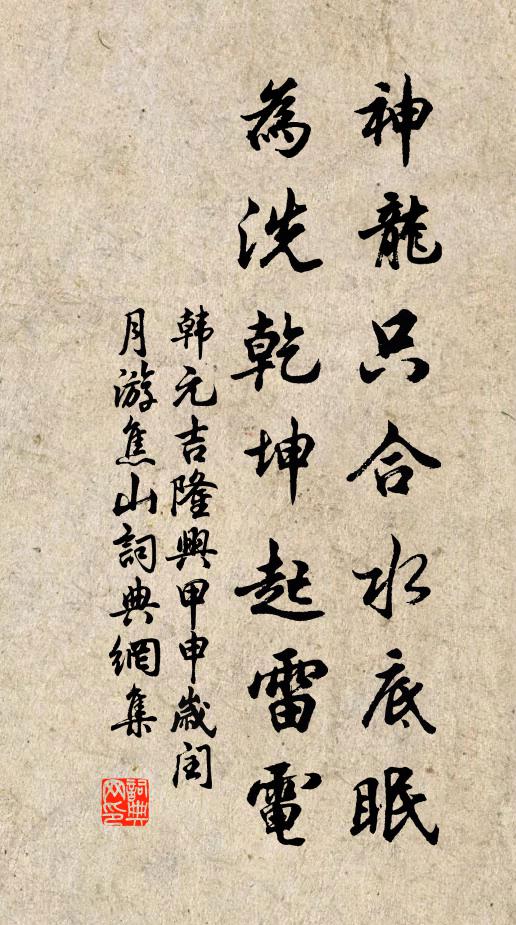 神龍只合水底眠
為洗乾坤起雷電
韩元吉隆興甲申歲闰
月游焦山詞典網集
詞典网印